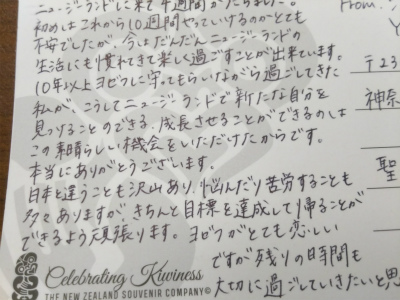 ニュージーランドに来て4週間がたちました。
初めはこれから10週間やっていけるのかとても
不安でしたが、今はだんだんニュージーランドの
生活にも慣れてきて楽しく過ごすことが出来ています。
10年以上ヨゼフに守ってもらいながら過ごしてきた
私が、こうしてニュージーランドで新たな自分を
見つけることのできる、成長させることができるのは
この素晴らしい機会をいただけたからです。
本当にありがとうございます。
日本と違うことも沢山あり、悩んだり苦労することも
多々ありますが、きちんと目標を達成して帰ることが
できるよう頑張ります。ヨゼフがとても恋しい
ですが残りの時間も
大切に過ごしていきたいと思
From:
〒23
神奈
聖
Celebrating Kiwiness
THE NEW ZEALAND SOUVENIR COMPANY©